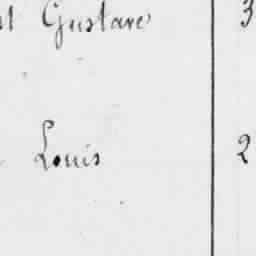 Gustave 3
Louis 2